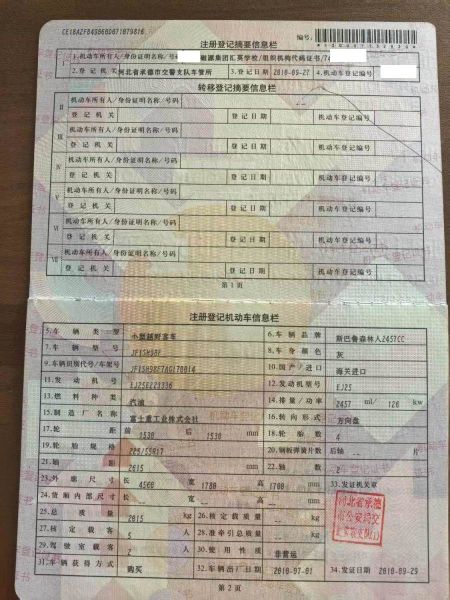 CE18A2FB4986D0D71079816
编号:
注册登记摘要信息栏
I 1.机动车所有人/身份证明名称/号码 集团汇英学校/组织机构代码证书/7
2.登记机关 河北省承德市交警支队车管所 3.登记日期 2010-09-27 4.机动车登记编号
转移登记摘要信息栏
II 机动车所有人/身份证明名称/号码
登记机关 登记日期 机动车登记编号
III 机动车所有人/身份证明名称/号码
登记机关 登记日期 机动车登记编号
IV 机动车所有人/身份证明名称/号码
登记机关 登记日期 机动车登记编号
V 机动车所有人/身份证明名称/号码
登记机关 登记日期 机动车登记编号
VI 机动车所有人/身份证明名称/号码
登记机关 登记日期 机动车登记编号
VII 机动车所有人/身份证明名称/号码
登记机关 登记日期 机动车登记编号
第1页
注册登记机动车信息栏
5.车辆类型 小型越野客车 6.车辆品牌 斯巴鲁森林人2457CC
7.车辆型号 JF1SH98F 8.车身颜色 灰
9.车辆识别代号/车架号 JF1SH98F7AG170014 10.国产/进口 海关进口
11.发动机号 EJ25E221336 12.发动机型号 EJ25
13.燃料种类 汽油 14.排量/功率 2457 ml/ 126 kw
15.制造厂名称 富士重工业株式会社 16.转向形式 方向盘
17.轮距 前 1530 后 1530 mm 18.轮胎数 4
19.轮胎规格 225/55R17 20.钢板弹簧片数 后轴 片
21.轴距 2615 mm 22.轴数 2
23.外廓尺寸 长 4560 宽 1780 高 1700 mm 33.发证机关
24.货厢内部尺寸 长 宽 高 mm
25.总质量 2015 kg 26.核定载质量 kg
27.核定载客 5 人 28.准牵引总质量 kg
29.驾驶室载客 人 30.使用性质 非营运
31.车辆获得方式 购买 32.车辆出厂日期 2010-07-01 34.发证日期 2010-09-29
河北省承德
市公安局交
第2页